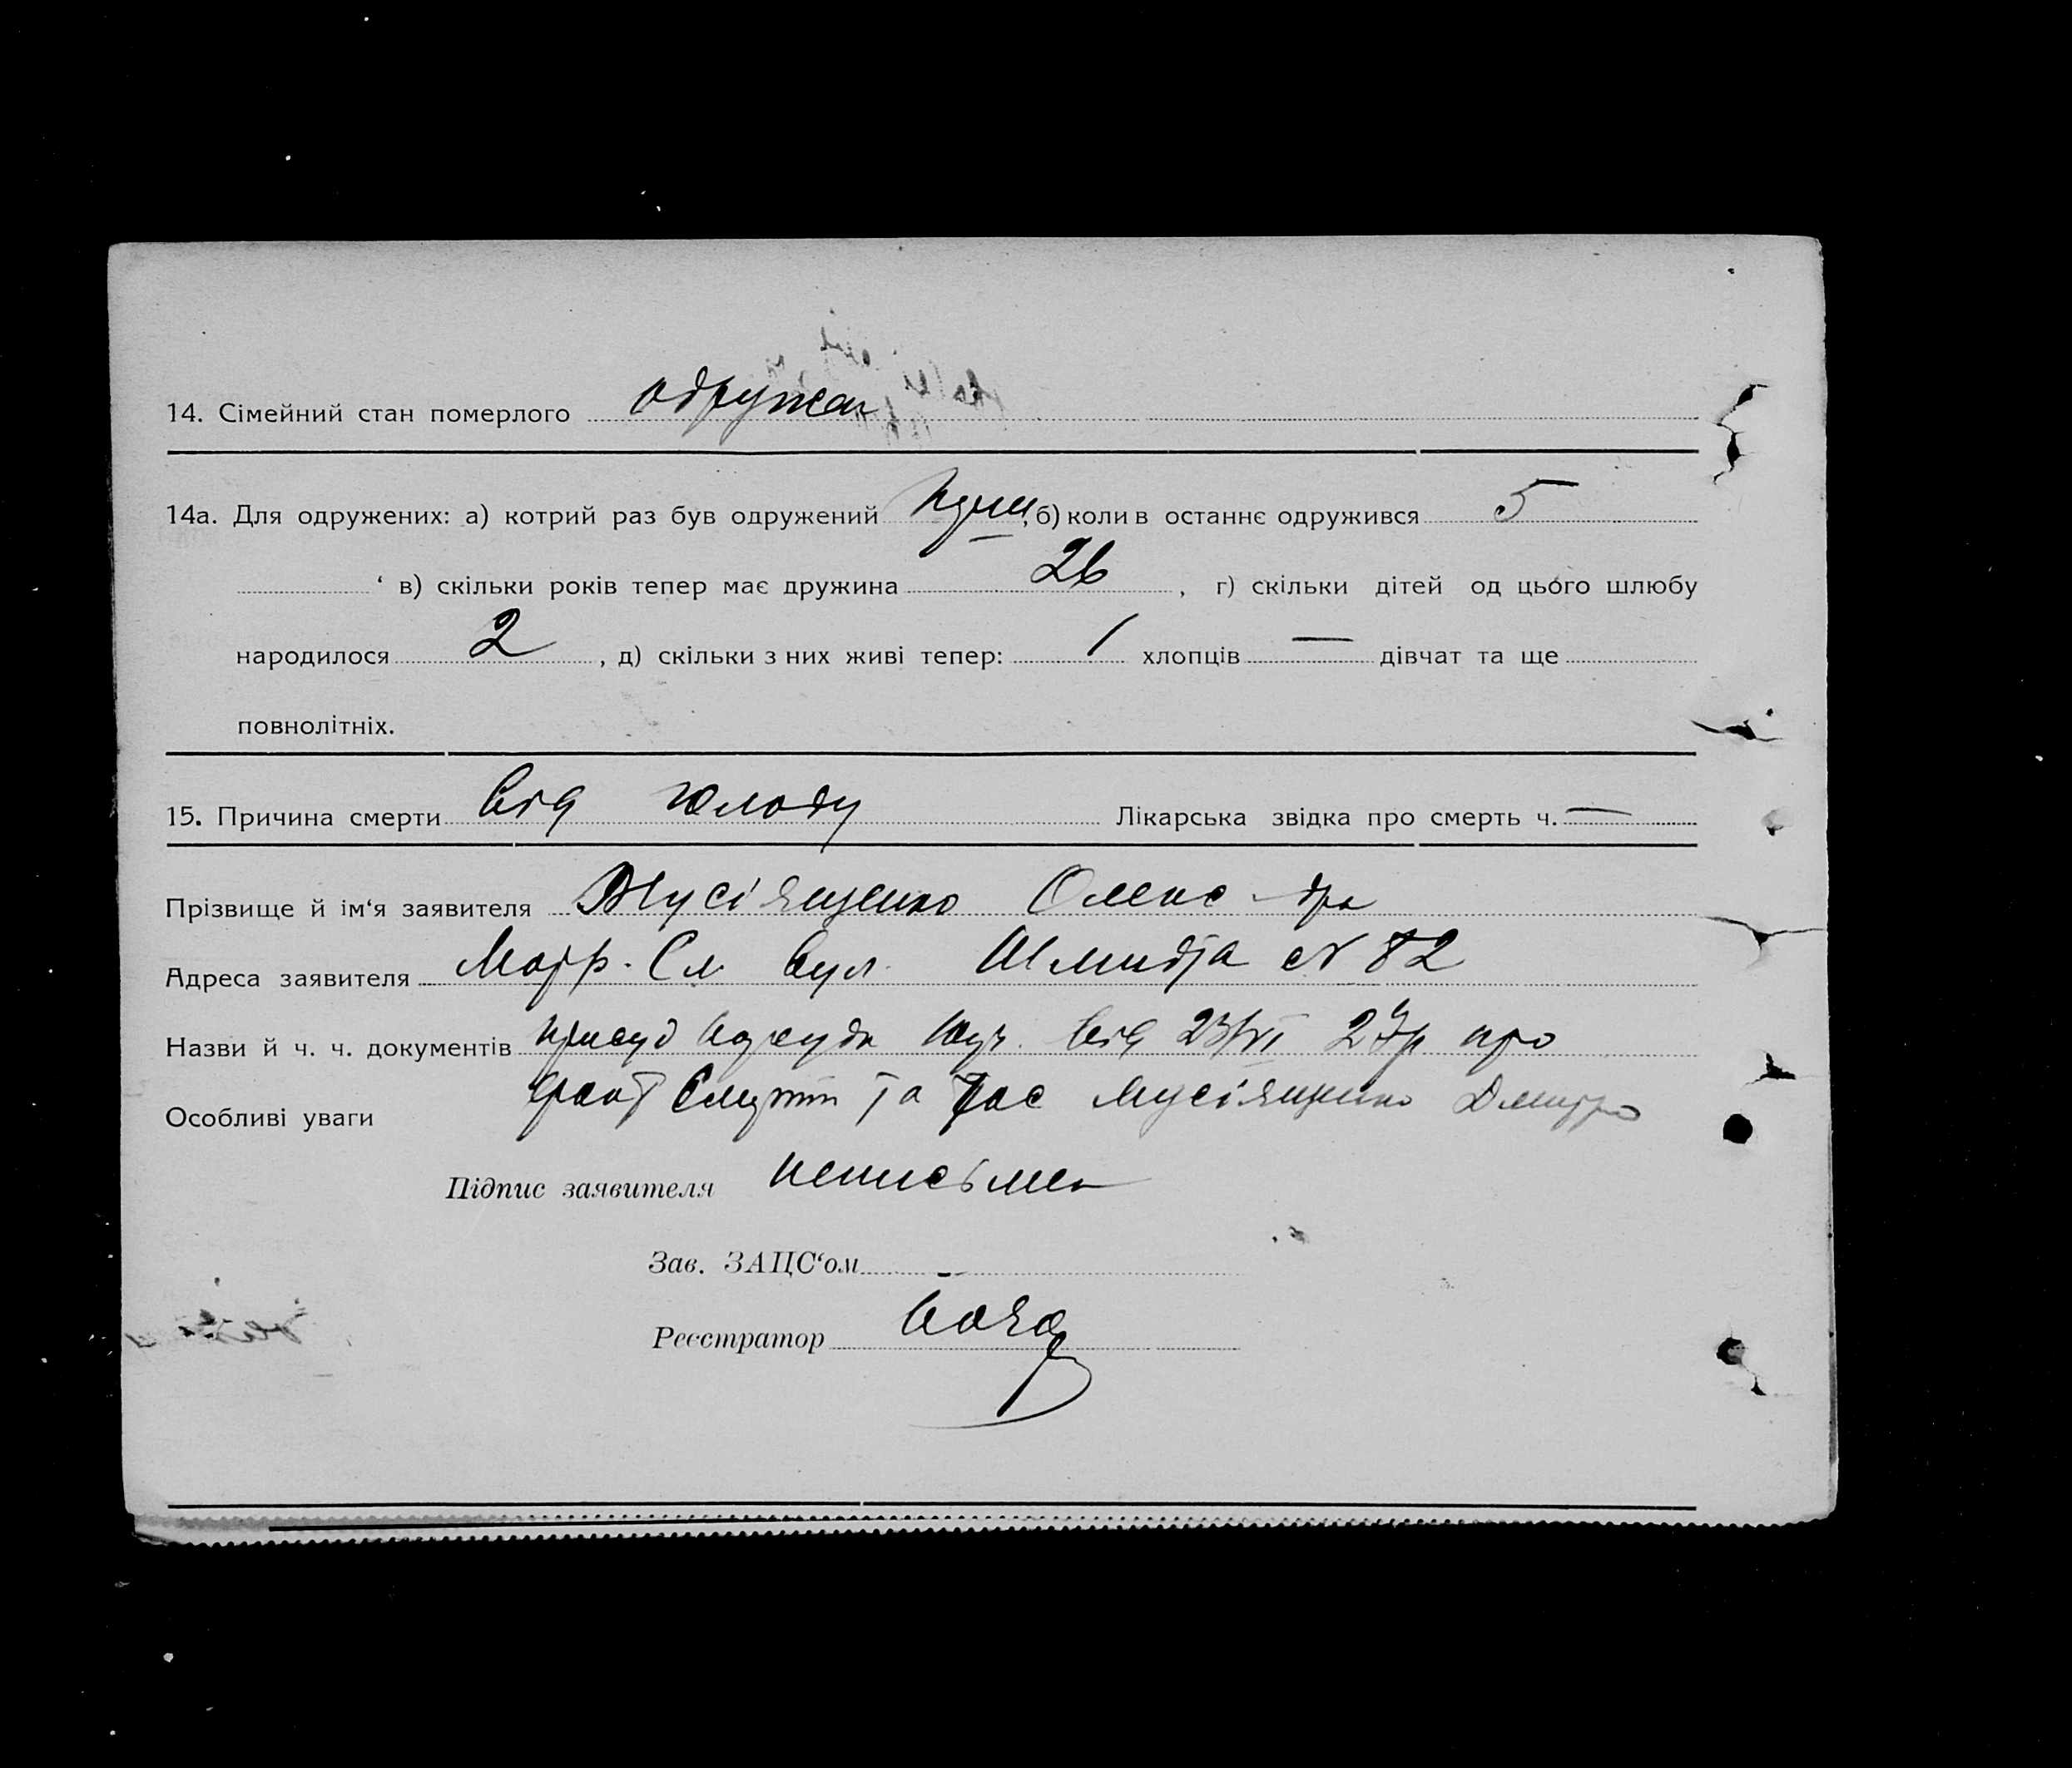 14. Сімейний стан померлого одружен
14а. Для одружених: а) котрий раз був одружений , б) коли в останнє одружився 5
‘ в) скільки років тепер має дружина 26 , г) скільки дітей од цього шлюбу
народилося 2 , д) скільки з них живі тепер: 1 хлопців — дівчат та ще
повнолітніх.
15. Причина смерти від голоду Лікарська звідка про смерть ч. —
Прізвище й ім‘я заявителя Мусіященко Олександра
Адреса заявителя вул. Шмидта № 82
Назви й ч. ч. документів присуд від 23/VI 27р про
Особливі уваги факт смерти та час Мусіященко Дмитро
Підпис заявителя неписьмен
Зав. ЗАЦС‘ом
Реєстратор